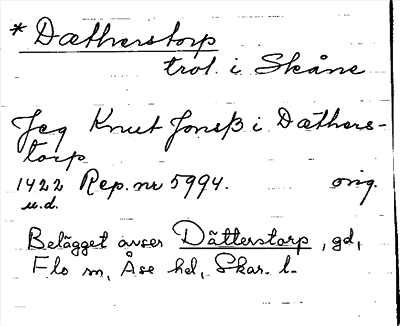 * Dætherstorp
trol. i Skåne
Jeg Knut Jonsß i Dæthers-
torp
1422 Rep. nr 5994. orig.
u.d.
Belägget avser Dätterstorp, gd,
Flo sn, Åse hd, Skar. l.